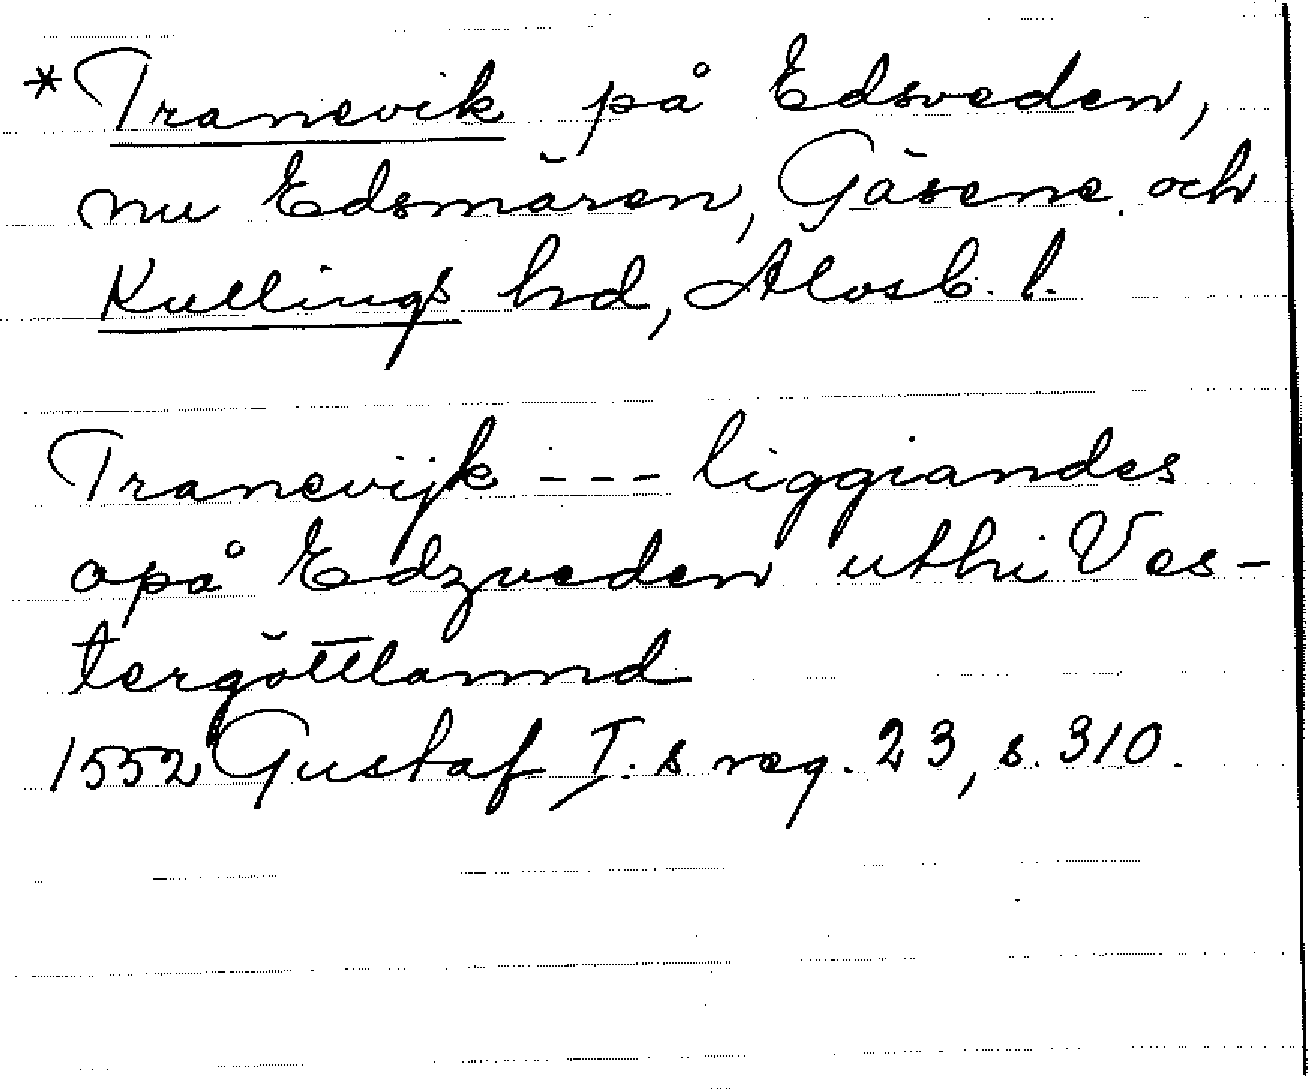 *Tranevik på Edsveden,
nu Edsmären, Gäsene och
Kullings hd, Älvsb. l.
Tranevijk --- liggiandes
opå Edzveden uthi Ves-
tergöttlannd
1552 Gustaf I.s reg. 23, s. 310.